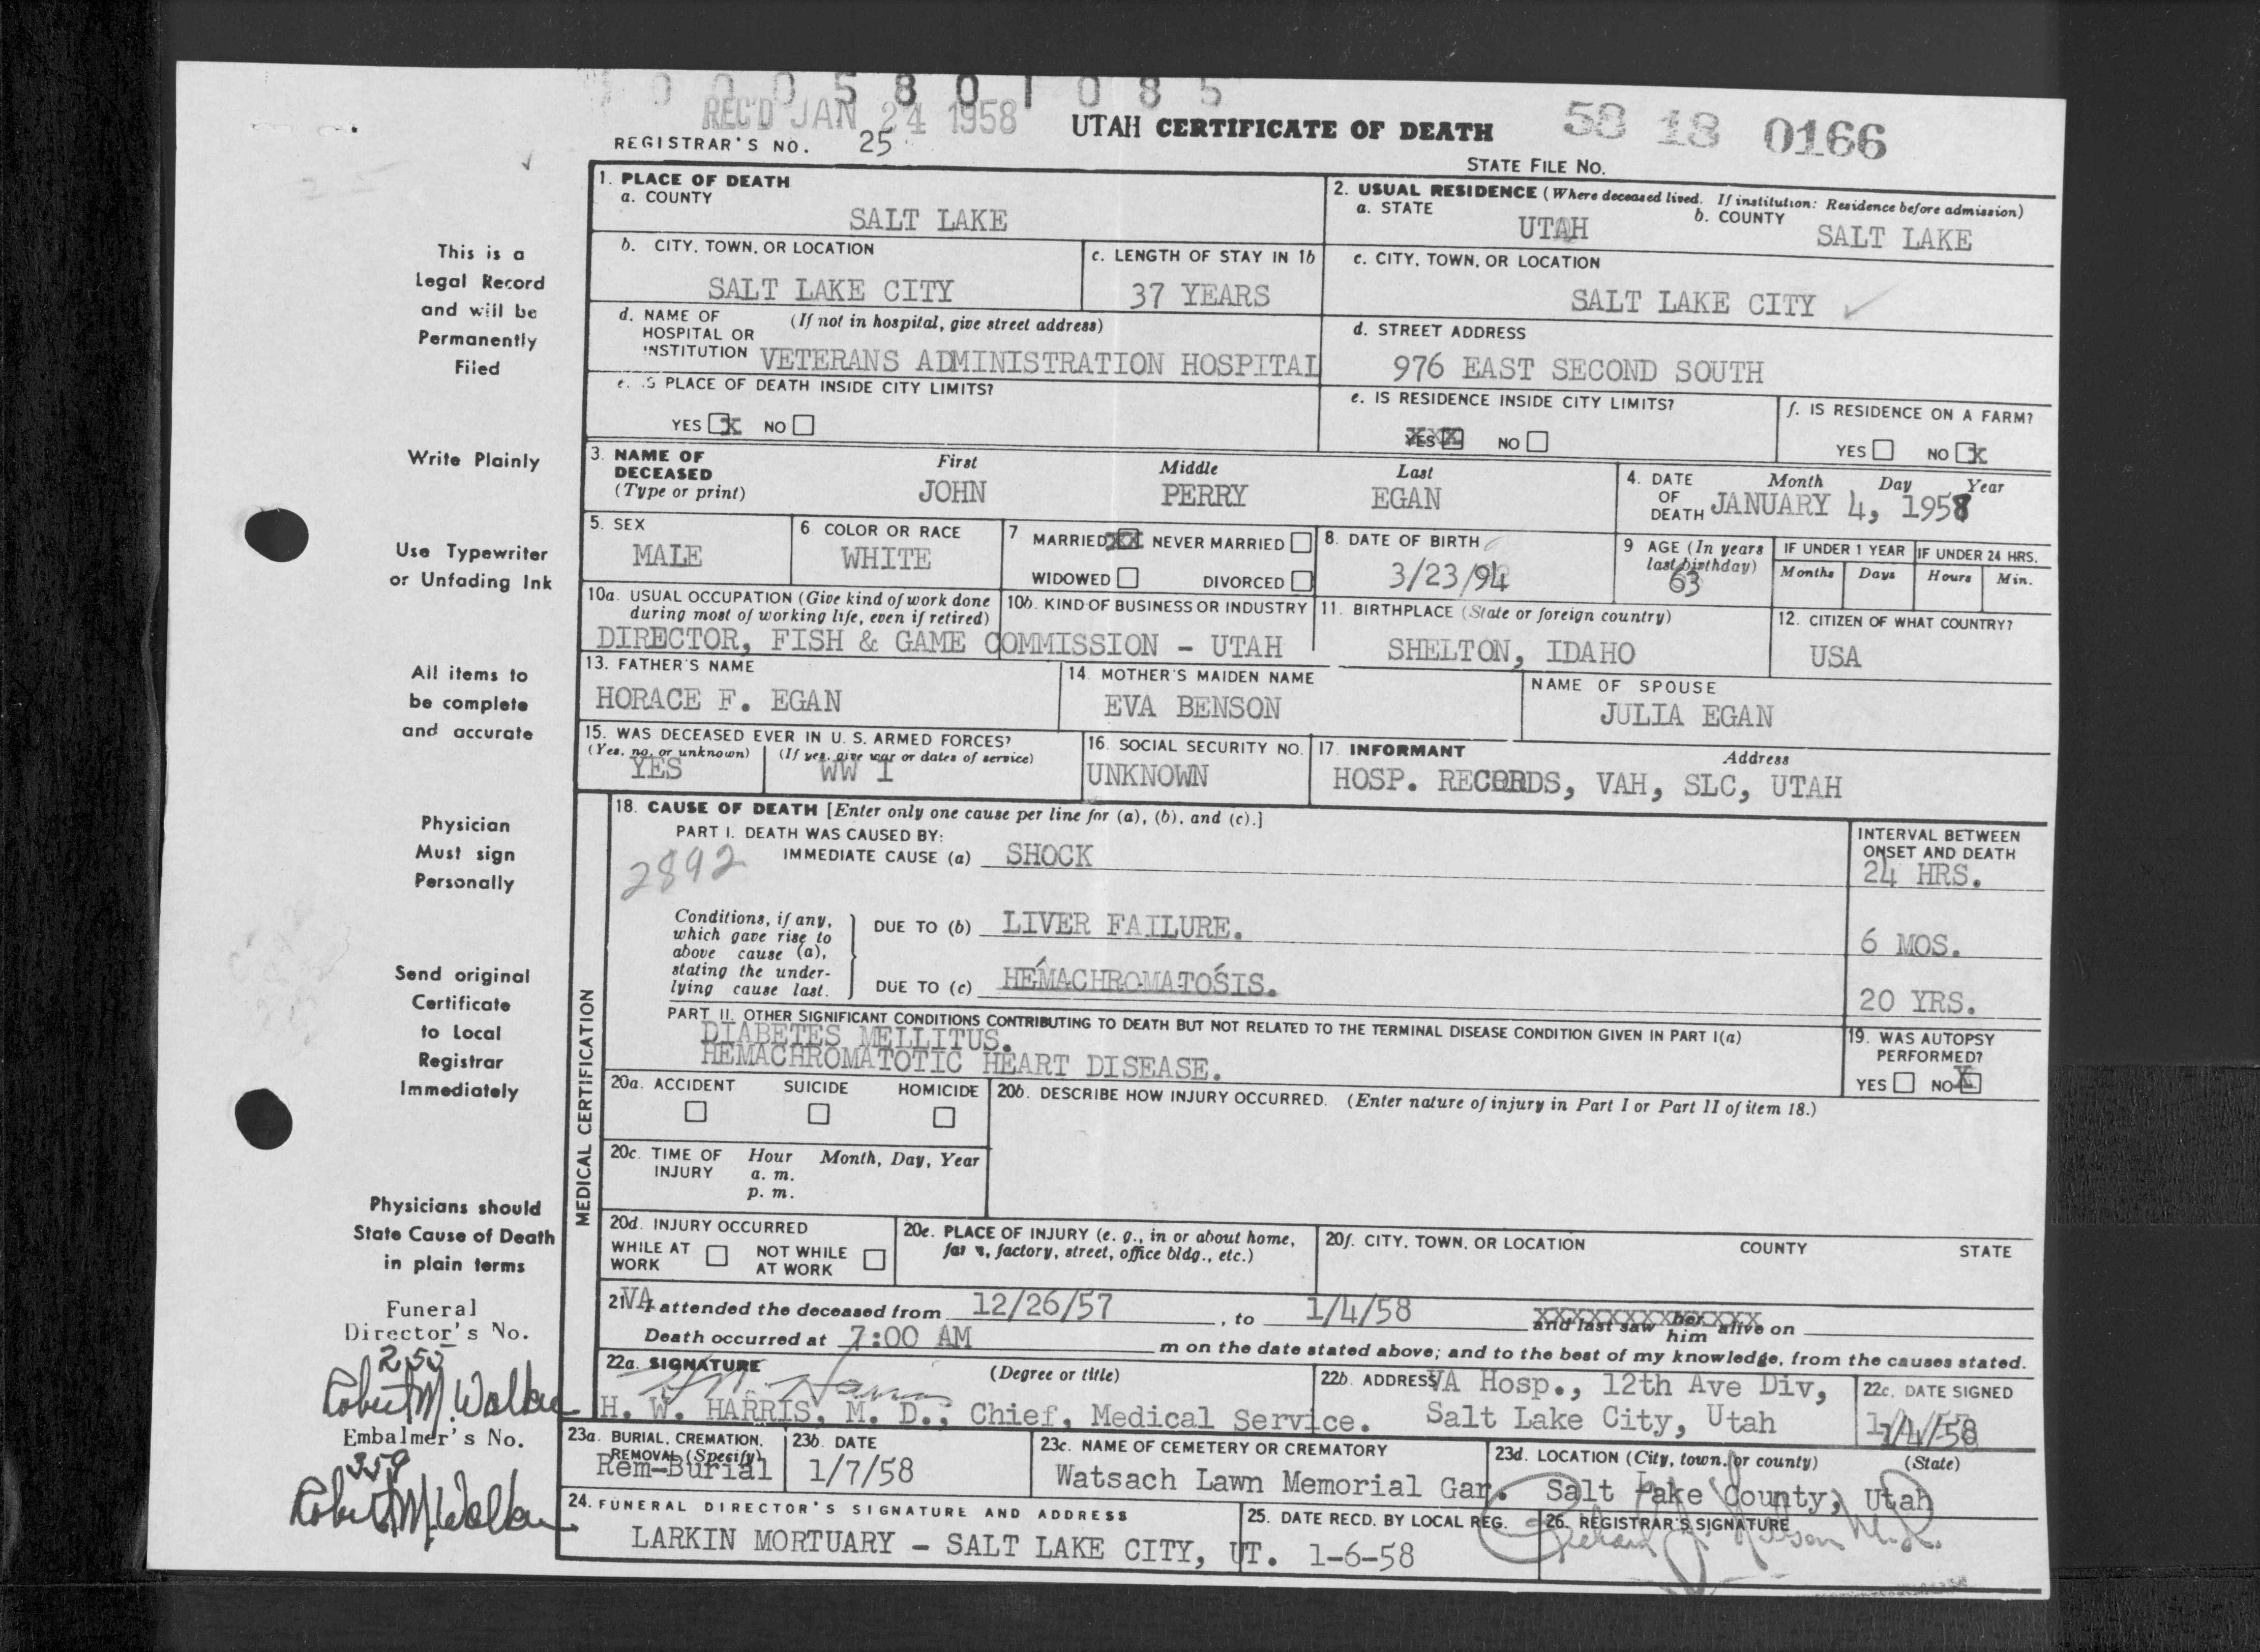 0 0 0 5 8 0 1 0 8 5
REC'D JAN 24 1958
UTAH CERTIFICATE OF DEATH
58 18 0166
REGISTRAR'S NO. 25
STATE FILE NO.
This is a
Legal Record
and will be
Permanently
Filed
Write Plainly
Use Typewriter
or Unfading Ink
All items to
be complete
and accurate
Physician
Must sign
Personally
Send original
Certificate
to Local
Registrar
Immediately
Physicians should
State Cause of Death
in plain terms
Funeral
Director's No.
255
Robert M. Walker
Embalmer's No.
359
Robert M. Walker
1. PLACE OF DEATH
a. COUNTY
SALT LAKE
2. USUAL RESIDENCE (Where deceased lived. If institution: Residence before admission)
a. STATE b. COUNTY
UTAH SALT LAKE
b. CITY, TOWN, OR LOCATION
SALT LAKE CITY
c. LENGTH OF STAY IN 1b
37 YEARS
c. CITY, TOWN, OR LOCATION
SALT LAKE CITY
d. NAME OF (If not in hospital, give street address)
HOSPITAL OR
INSTITUTION VETERANS ADMINISTRATION HOSPITAL
d. STREET ADDRESS
976 EAST SECOND SOUTH
e. IS PLACE OF DEATH INSIDE CITY LIMITS?
YES X NO
e. IS RESIDENCE INSIDE CITY LIMITS?
YES X NO
f. IS RESIDENCE ON A FARM?
YES NO X
3. NAME OF First Middle Last
DECEASED
(Type or print) JOHN PERRY EGAN
4. DATE Month Day Year
OF
DEATH JANUARY 4, 1958
5. SEX
MALE
6. COLOR OR RACE
WHITE
7 MARRIED XX NEVER MARRIED
WIDOWED DIVORCED
8. DATE OF BIRTH
3/23/94
9 AGE (In years
last birthday)
63
IF UNDER 1 YEAR IF UNDER 24 HRS.
Months Days Hours Min.
10a. USUAL OCCUPATION (Give kind of work done
during most of working life, even if retired)
10b. KIND OF BUSINESS OR INDUSTRY
DIRECTOR, FISH & GAME COMMISSION - UTAH
11. BIRTHPLACE (State or foreign country)
SHELTON, IDAHO
12. CITIZEN OF WHAT COUNTRY?
USA
13. FATHER'S NAME
HORACE F. EGAN
14. MOTHER'S MAIDEN NAME
EVA BENSON
NAME OF SPOUSE
JULIA EGAN
15. WAS DECEASED EVER IN U. S. ARMED FORCES?
(Yes, no, or unknown) (If yes, give war or dates of service)
YES WW I
16. SOCIAL SECURITY NO.
UNKNOWN
17. INFORMANT Address
HOSP. RECORDS, VAH, SLC, UTAH
MEDICAL CERTIFICATION
18. CAUSE OF DEATH [Enter only one cause per line for (a), (b), and (c).]
PART I. DEATH WAS CAUSED BY:
IMMEDIATE CAUSE (a) SHOCK
2892
INTERVAL BETWEEN
ONSET AND DEATH
24 HRS.
Conditions, if any,
which gave rise to
above cause (a),
stating the under-
lying cause last.
DUE TO (b) LIVER FAILURE.
6 MOS.
DUE TO (c) HEMACHROMATOSIS.
20 YRS.
PART II. OTHER SIGNIFICANT CONDITIONS CONTRIBUTING TO DEATH BUT NOT RELATED TO THE TERMINAL DISEASE CONDITION GIVEN IN PART I(a)
DIABETES MELLITUS.
HEMACHROMATOTIC HEART DISEASE.
19. WAS AUTOPSY
PERFORMED?
YES NO X
20a. ACCIDENT SUICIDE HOMICIDE
20b. DESCRIBE HOW INJURY OCCURRED. (Enter nature of injury in Part I or Part II of item 18.)
20c. TIME OF Hour Month, Day, Year
INJURY a. m.
p. m.
20d. INJURY OCCURRED
WHILE AT NOT WHILE
WORK AT WORK
20e. PLACE OF INJURY (e. g., in or about home,
farm, factory, street, office bldg., etc.)
20f. CITY, TOWN, OR LOCATION COUNTY STATE
21. VA attended the deceased from 12/26/57, to 1/4/58 and last saw her him alive on
Death occurred at 7:00 AM m on the date stated above; and to the best of my knowledge, from the causes stated.
22a. SIGNATURE (Degree or title)
H. W. HARRIS, M. D., Chief, Medical Service.
22b. ADDRESS VA Hosp., 12th Ave Div,
Salt Lake City, Utah
22c. DATE SIGNED
1/4/58
23a. BURIAL, CREMATION,
REMOVAL (Specify)
Rem-Burial
23b. DATE
1/7/58
23c. NAME OF CEMETERY OR CREMATORY
Watsach Lawn Memorial Gar.
23d. LOCATION (City, town, or county) (State)
Salt Lake County, Utah
24. FUNERAL DIRECTOR'S SIGNATURE AND ADDRESS
LARKIN MORTUARY - SALT LAKE CITY, UT.
25. DATE RECD. BY LOCAL REG.
1-6-58
26. REGISTRAR'S SIGNATURE